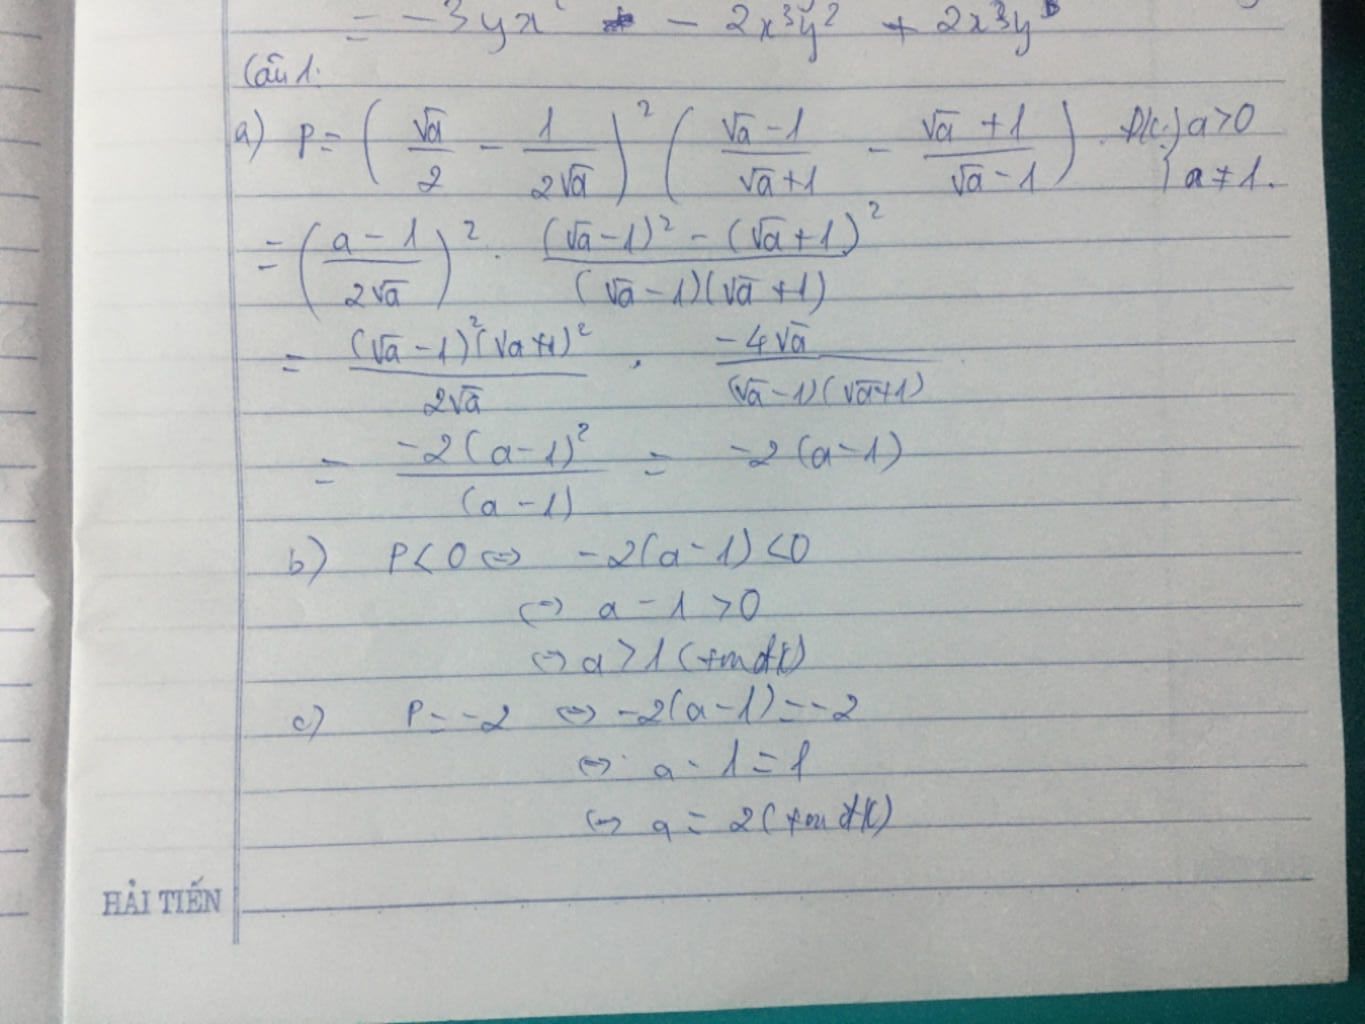 = -3yx - 2x³y² + 2x³y³
Câu 1:
a) P = (√a/2 - 1/(2√a))² ((√a-1)/(√a+1) - (√a+1)/(√a-1)) . Đk: { a>0
a ≠ 1.
= ((a-1)/(2√a))² . ((√a-1)² - (√a+1)²)/((√a-1)(√a+1))
= ((√a-1)²(√a+1)²)/(2√a) . (-4√a)/((√a-1)(√a+1))
= (-2(a-1)²)/((a-1)) = -2(a-1)
b) P<0 ⇔ -2(a-1)<0
⇔ a-1>0
⇔ a>1 (tm đk)
c) P=-2 ⇔ -2(a-1)=-2
⇔ a-1=1
⇔ a=2 (tm đk)
HẢI TIẾN